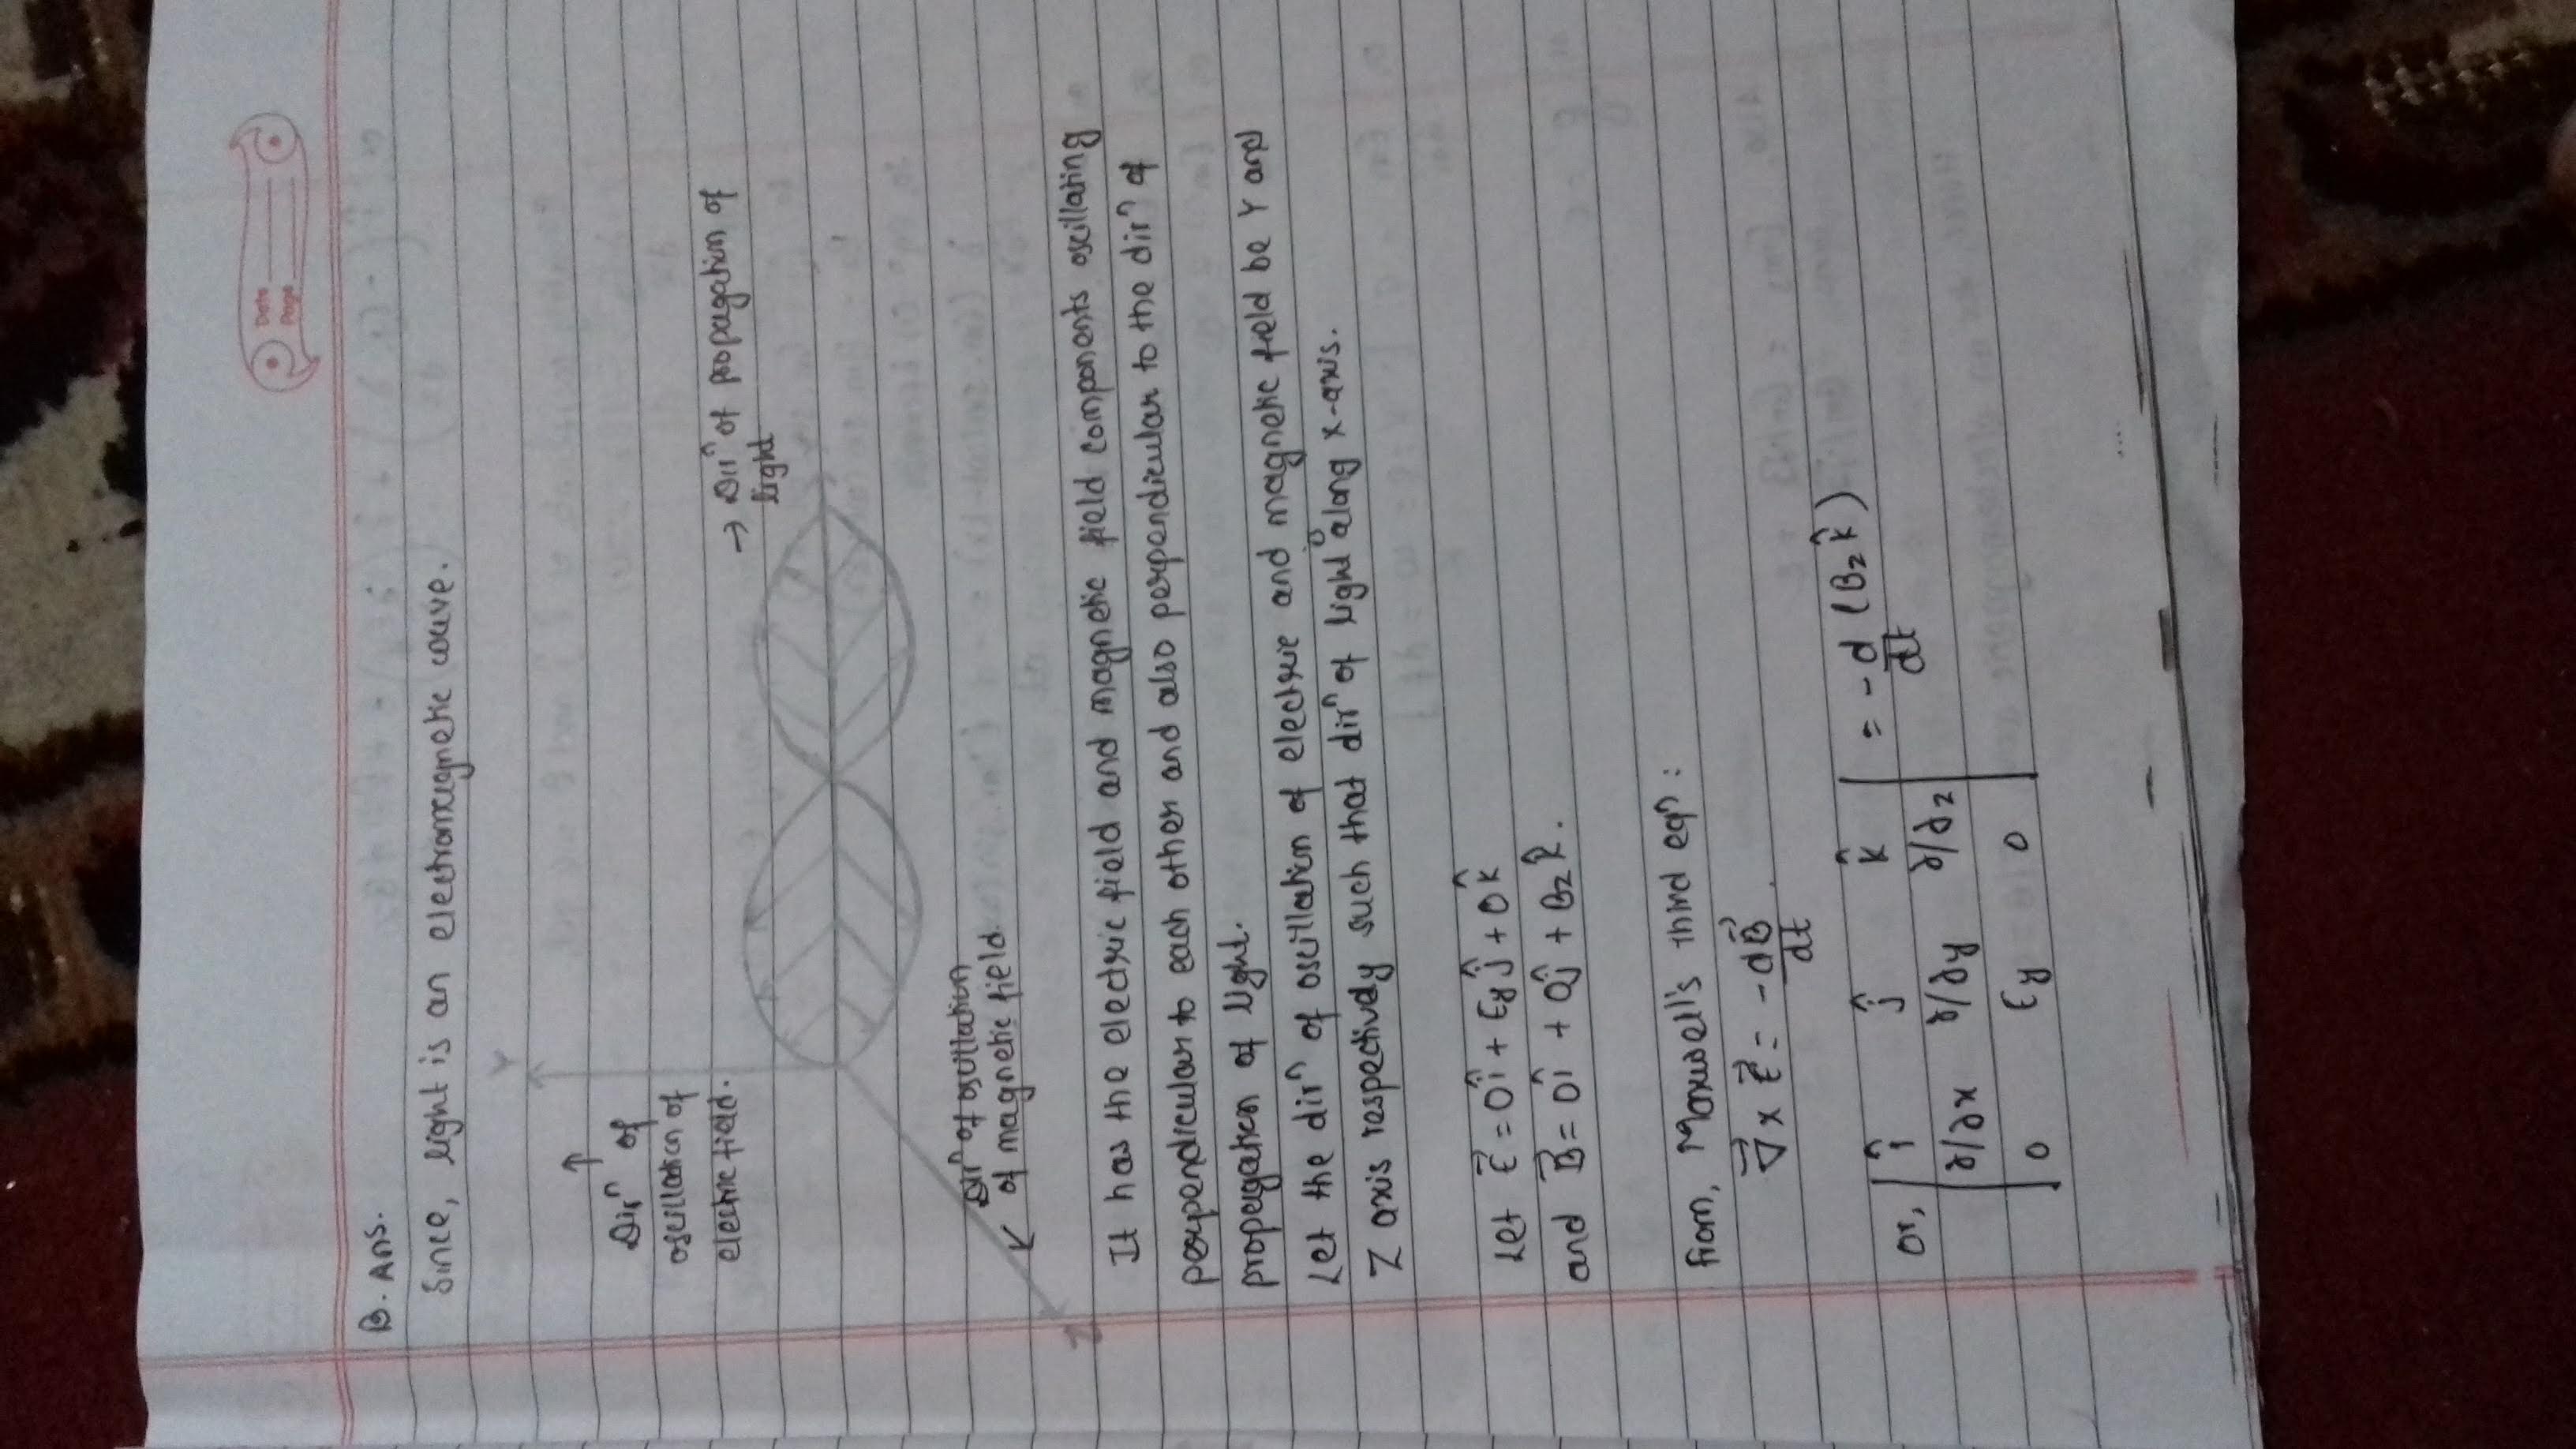 Date
Page
B. Ans.
Since, light is an electromagnetic wave.
Y
↑
Dirⁿ of
oscillation of
electric field.
→ Dirⁿ of propagation of
light
Dirⁿ of oscillation
↙ of magnetic field.
Z
It has the electric field and magnetic field components oscillating
perpendicular to each other and also perpendicular to the dirⁿ of
propagation of light.
Let the dirⁿ of oscillation of electric and magnetic field be Y and
Z axis respectively such that dirⁿ of light along x-axis.
Let E⃗ = 0î + Eyĵ + 0k̂
and B⃗ = 0î + 0ĵ + Bz k̂.
from, Maxwell's third eqⁿ:
∇⃗ x E⃗ = -dB⃗/dt.
or, | î ĵ k̂ | = -d/dt (Bz k̂)
| ∂/∂x ∂/∂y ∂/∂z |
| 0 Ey 0 |